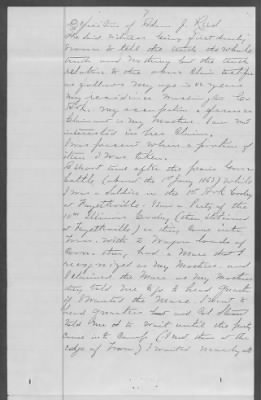 7
Deposition of Edwin J. Reed
The said witness being first duly
sworn to tell the truth the whole
truth and nothing but the truth
relative to the above Claim testifies
as follows My age is years
my residence Washington Co
Ark. my occupation a farmer
Claimant is my Mother I am not
interested in her Claim.
I was present when a portion of
item 1 was taken.
A short time after the prairie Grove
battle (about the 1st Jany 1863) While
I was a Soldier in the 1st Ark Cavalry
at Fayetteville. A party of the
10th Illinois Cavalry (then stationed
at Fayetteville) as they came into
Town with 2 Wagon loads of
Corn. they had a Mare that I
recognized as my Mothers and
I claimed the Mare as my Mothers
they told me to go to head quarters
if I wanted the Mare. I went to
head quarters and Col
told me to wait until the party
came into Camp (I met them at the
edge of Town) I waited nearly all